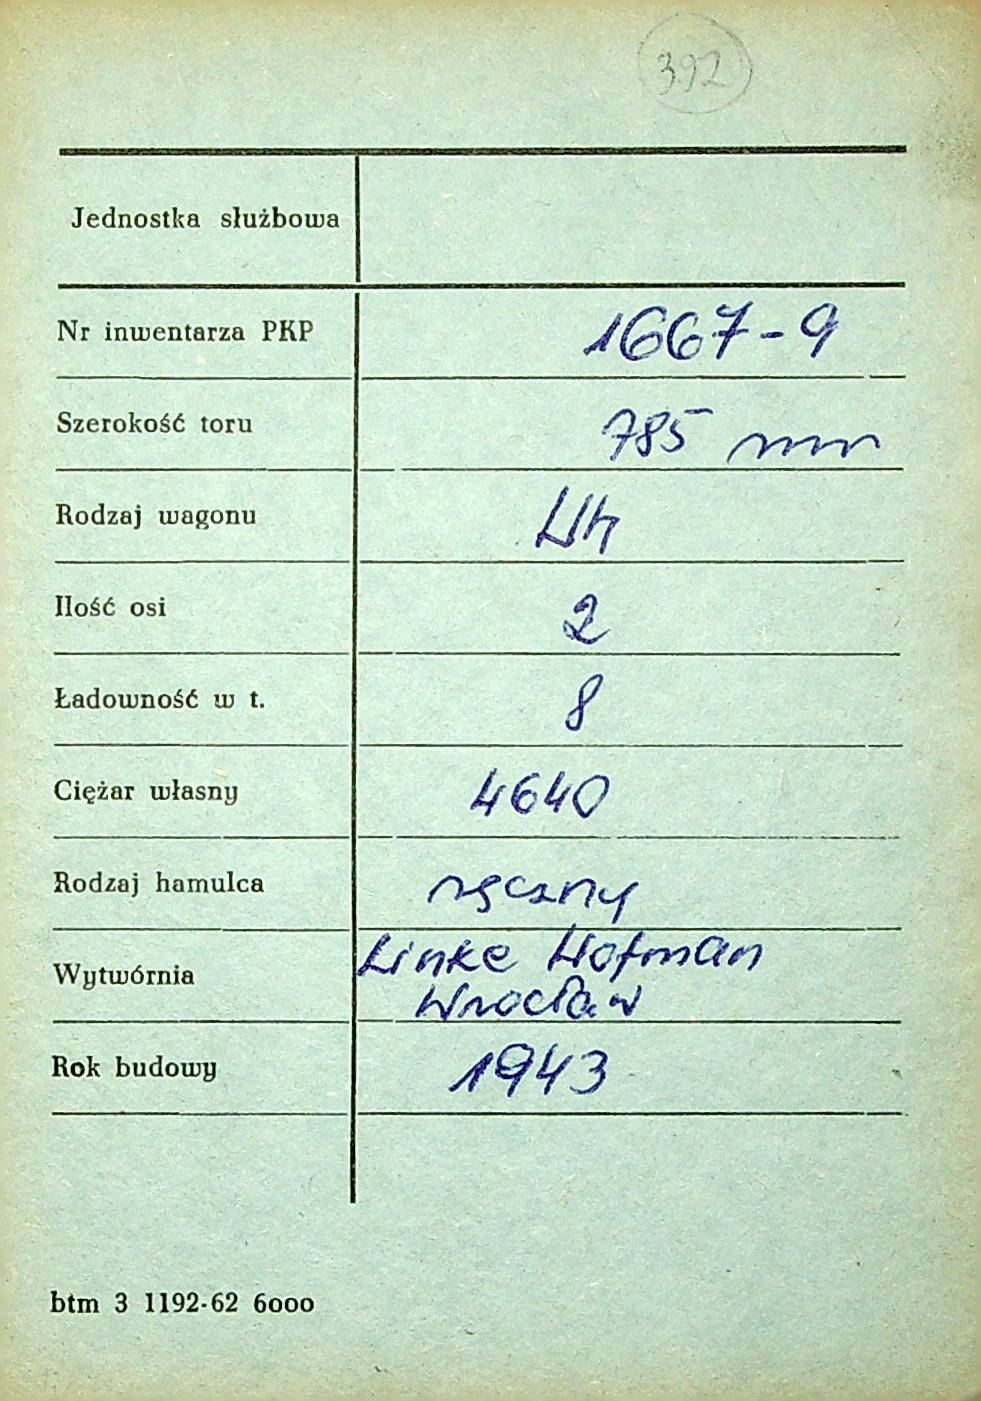 392
Jednostka służbowa
Nr inwentarza PKP 1667-9
Szerokość toru 785 mm
Rodzaj wagonu Wh
Ilość osi 2
Ładowność w t. 8
Ciężar własny 4640
Rodzaj hamulca ręczny
Wytwórnia Linke Hofman
Wrocław
Rok budowy 1943
btm 3 1192-62 6000